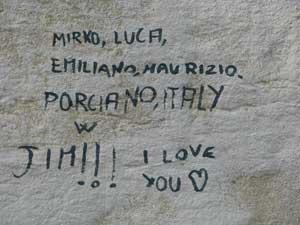 MIRKO, LUCA,
EMILIANO, MAURIZIO.
PORCIANO, ITALY
W
JIM!!! I LOVE
YOU ♡